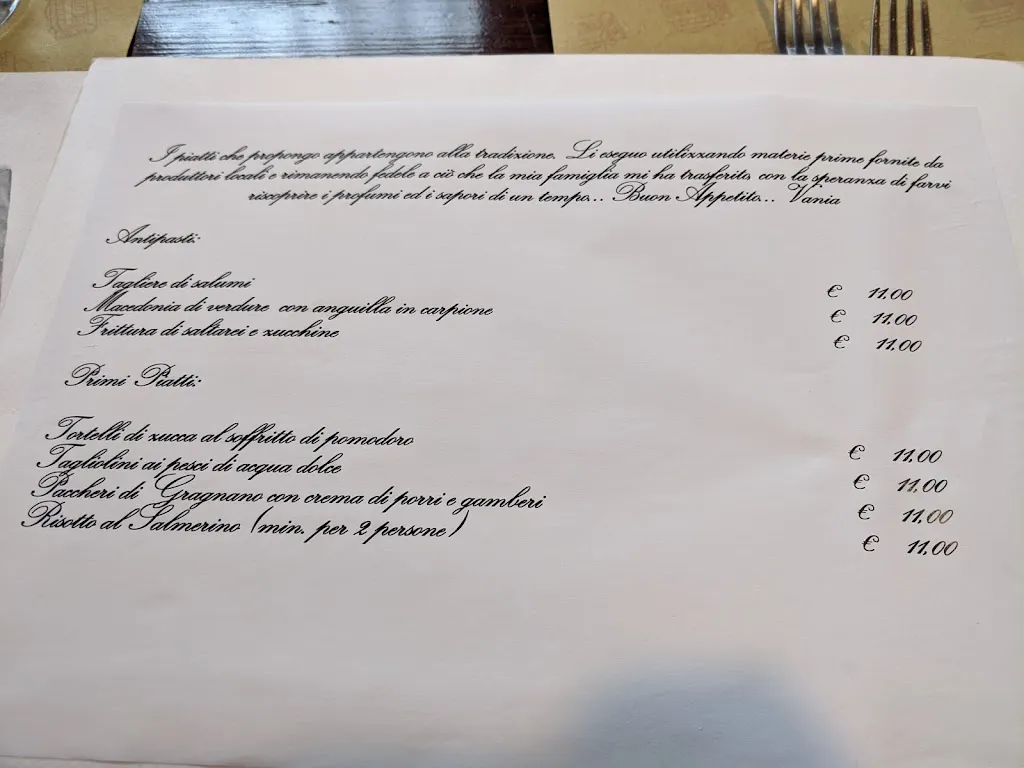 I piatti che propongo appartengono alla tradizione. Li eseguo utilizzando materie prime fornite da
produttori locali e rimanendo fedele a ciò che la mia famiglia mi ha trasferito, con la speranza di farvi
riscoprire i profumi ed i sapori di un tempo... Buon Appetito... Vania
Antipasti:
Tagliere di salumi € 11.00
Macedonia di verdure con anguilla in carpione € 11.00
Frittura di saltarei e zucchine € 11.00
Primi Piatti:
Tortelli di zucca al soffritto di pomodoro € 11.00
Tagliolini ai pesci di acqua dolce € 11.00
Paccheri di Gragnano con crema di porri e gamberi € 11.00
Risotto al Salmerino (min. per 2 persone) € 11.00